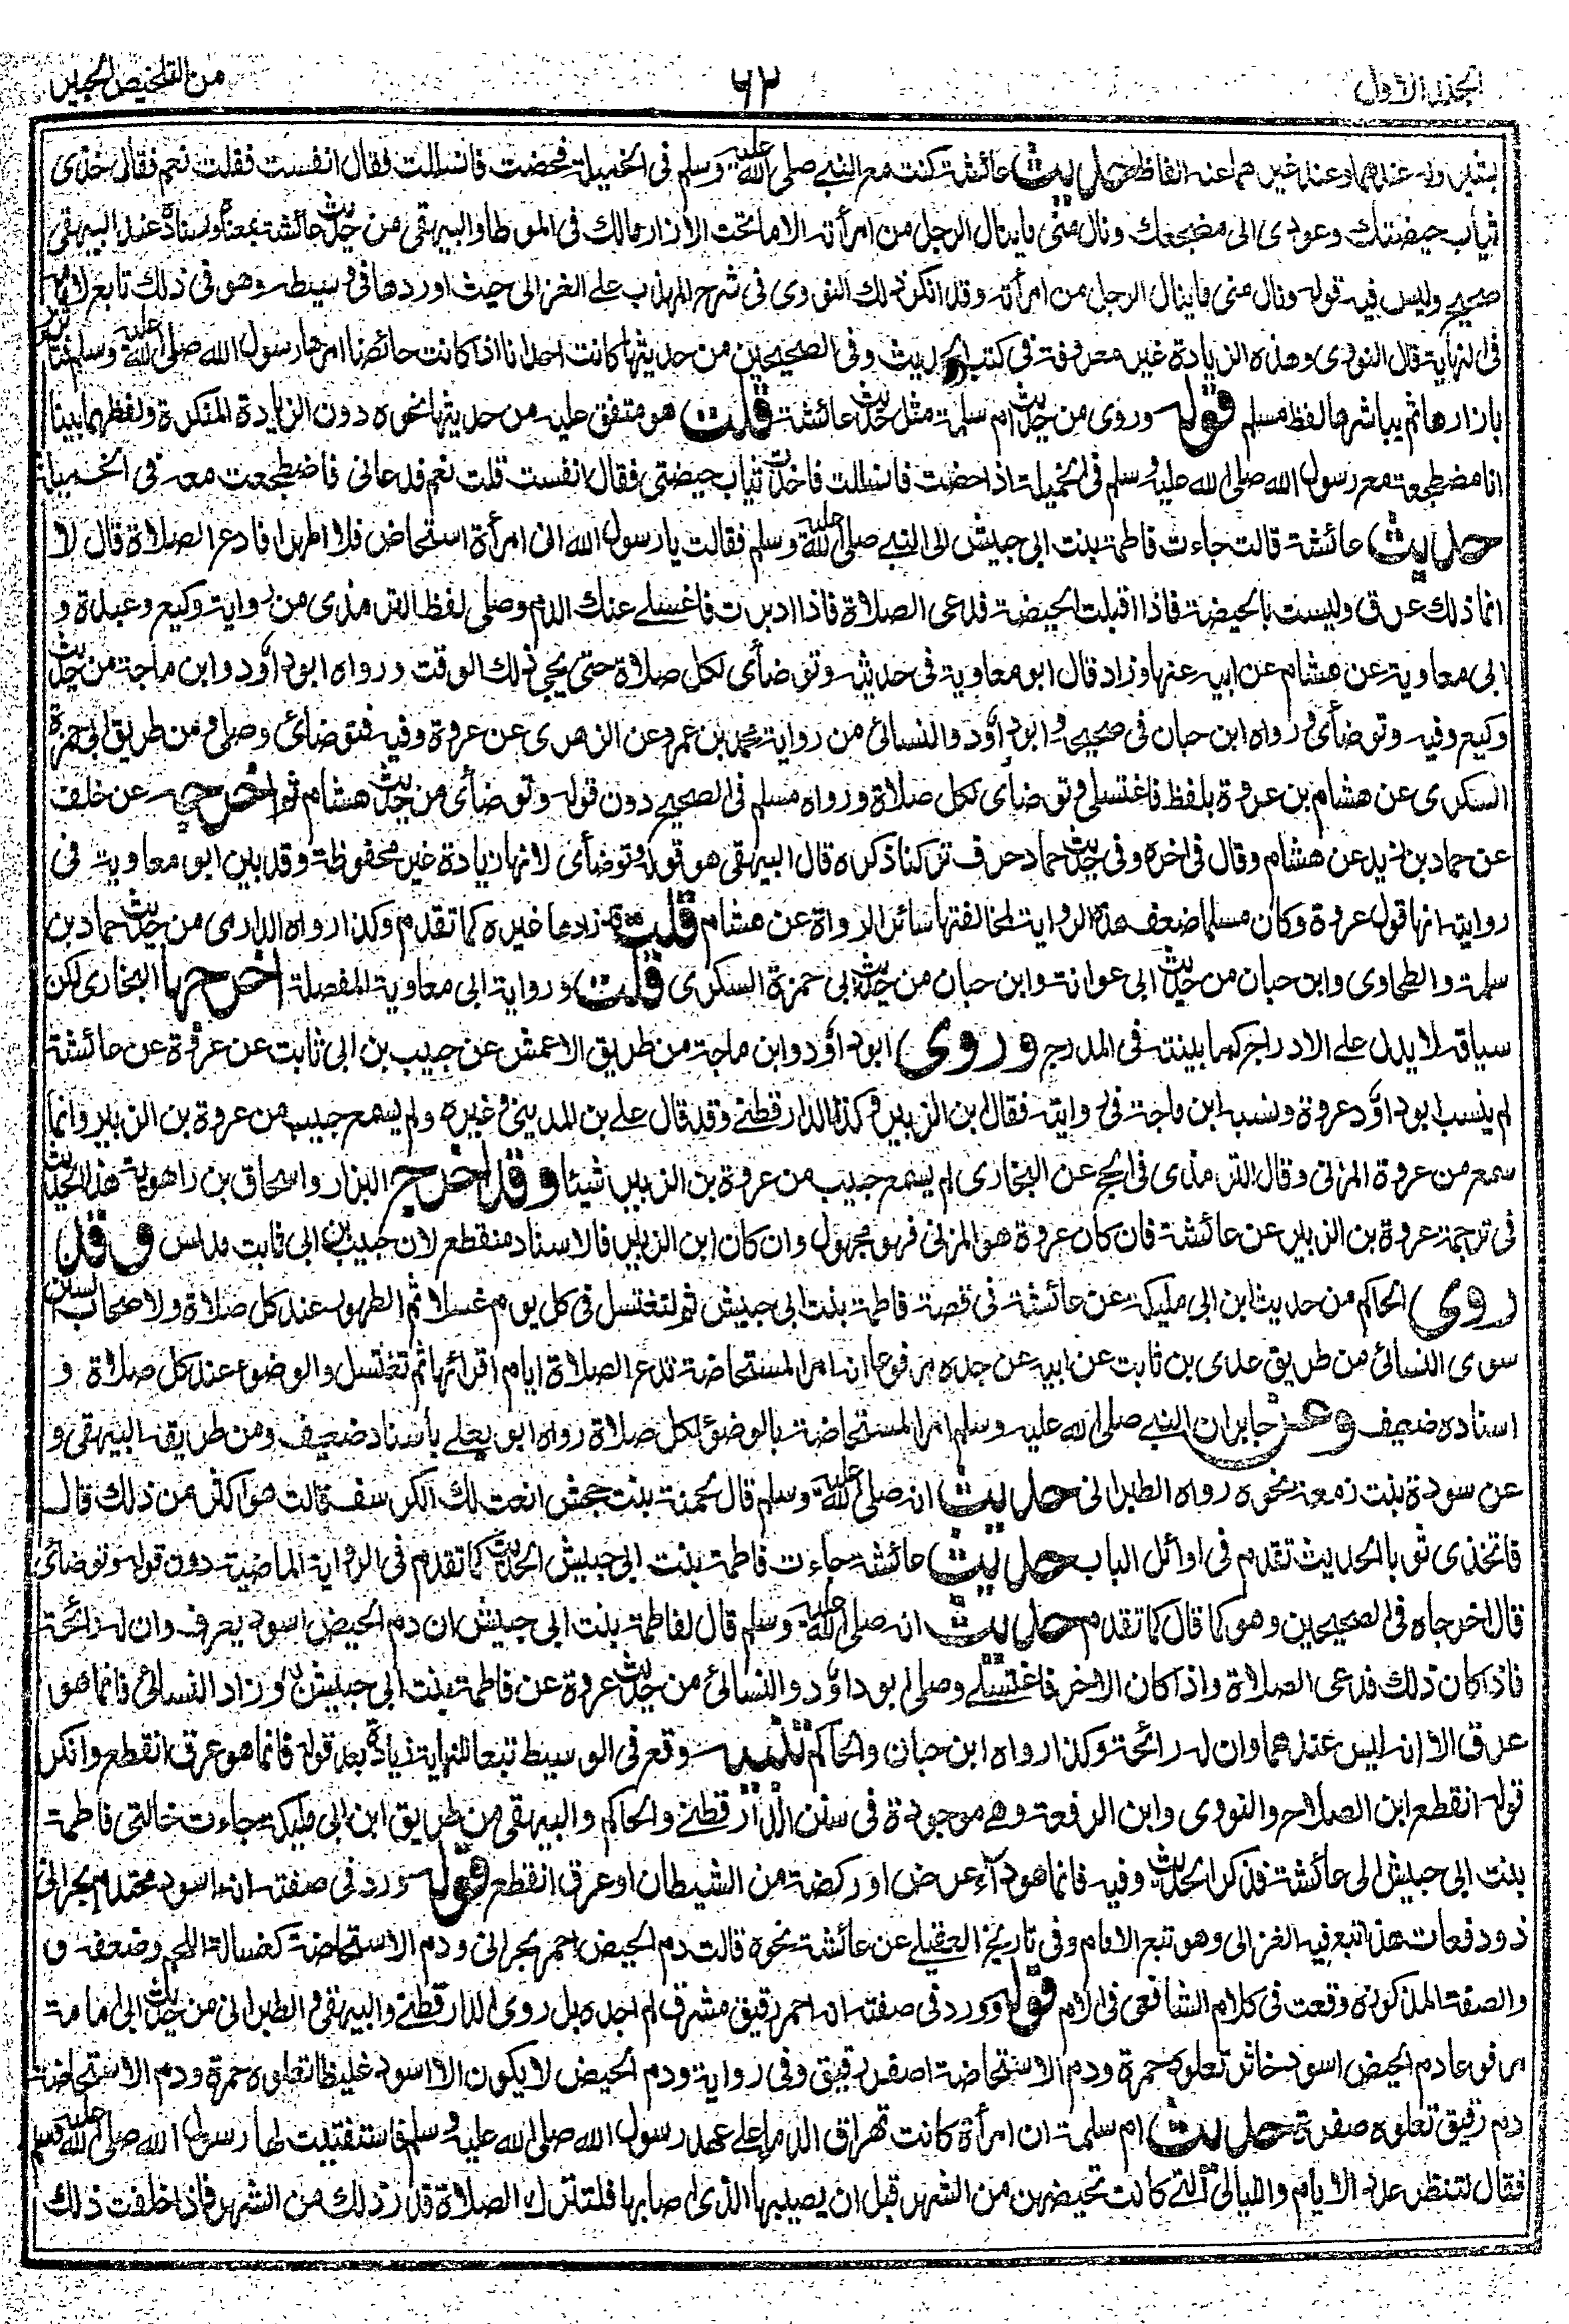 الجلد الاول ٦٢ من التلخيص الحبير
عندهما وعند غيرهما عنه الفاظ حديث عائشة كنت مع النبي صلى الله عليه وسلم في الخميلة فحضت فانسللت فقال انفست فقلت نعم فقال خذي
ثياب حيضتك وعودي الى مضجعك ونال مني ما ينال الرجل من امرأته الا ما تحت الازار مالك في الموطا والبيهقي من حديث عائشة بمعناه واسناده عند البيهقي
صحيح وليس فيه قوله ونال مني ما ينال الرجل من امرأته وقد انكر ذلك النووي في شرح المهذب على الغزالي حيث اوردها في وسيطه وهو في ذلك تابع لامامه
في النهاية قال النووي وهذه الزيادة غير معروفة في كتب الحديث وفي الصحيحين من حديثها كانت احدانا اذا كانت حائضا امرها رسول الله صلى الله عليه وسلم فتأتزر
بازارها ثم يباشرها لفظ مسلم قوله وروى من حديث ام سلمة مثل حديث عائشة قلت هو متفق عليه من حديثها نحوه دون الزيادة المنكرة ولفظهما بينا
انا مضطجعة مع رسول الله صلى الله عليه وسلم في الخميلة اذ احضت فانسللت فاخذت ثياب حيضتي فقال انفست قلت نعم فدعاني فاضطجعت معه في الخميلة
حديث عائشة قالت جاءت فاطمة بنت ابي حبيش الى النبي صلى الله عليه وسلم فقالت يا رسول الله اني امرأة استحاض فلا اطهر افادع الصلاة قال لا
انما ذلك عرق وليست بالحيضة فاذا اقبلت الحيضة فدعي الصلاة فاذا ادبرت فاغسلي عنك الدم وصلي لفظ الترمذي من رواية وكيع وعبدة و
ابي معاوية عن هشام عن ابيه عنها وزاد قال ابو معاوية في حديثه وتوضأي لكل صلاة حتى يجيء ذلك الوقت ورواه ابو داؤد وابن ماجة من حديث
وكيع وفيه وتوضأي ورواه ابن حبان في صحيحه وابو داؤد والنسائي من رواية محمد بن عمرو عن الزهري عن عروة وفيه فتوضائي وصلي ومن طريق ابي حمزة
السكري عن هشام بن عروة بلفظ فاغتسلي وتوضاي لكل صلاة ورواه مسلم في الصحيح دون قوله وتوضأي من حديث هشام ثم اخرجه عن خلف
عن حماد بن زيد عن هشام وقال في اخره وفي حديث حماد حرف تركنا ذكره قال البيهقي هو قوله وتوضأي لانها زيادة غير محفوظة وقد بين ابو معاوية في
روايته انها قول عروة وكان مسلما ضعف هذه الرواية لمخالفتها سائر الرواة عن هشام قلت قد زادها غيره كما تقدم وكذا رواه الدارمي من حديث حماد بن
سلمة والطحاوي وابن حبان من حديث ابي عوانة وابن حبان من حديث ابي حمزة السكري قلت ورواية ابي معاوية المفصلة اخرجها البخاري لكن
سياقه لا يدل على الادراج كما بينته في المدرج وروى ابو داؤد وابن ماجة من طريق الاعمش عن حبيب بن ابي ثابت عن عروة عن عائشة
لم ينسب ابو داؤد عروة ونسبه ابن ماجة في روايته فقال ابن الزبير وكذا الدارقطني وقد قال علي بن المديني وغيره ولم يسمع حبيب من عروة بن الزبير وانما
سمع من عروة المزني وقال الترمذي في الحج عن البخاري لم يسمع حبيب من عروة بن الزبير شيئا وقد اخرج البزار واسحاق بن راهوية هذا الحديث
في ترجمة عروة بن الزبير عن عائشة فان كان عروة هو المزني فهو مجهول وان كان ابن الزبير فالاسناد منقطع لان حبيب بن ابي ثابت مدلس وقد
روى الحاكم من حديث ابن ابي مليكة عن عائشة في قصة فاطمة بنت ابي حبيش ثم لتغتسل في كل يوم غسلا ثم الطهور عند كل صلاة ولاصحاب السنن
سوى النسائي من طريق عدي بن ثابت عن ابيه عن جده مرفوعا انه امر المستحاضة تدع الصلاة ايام اقرائها ثم تغتسل والوضوء عند كل صلاة و
اسناده ضعيف وعن جابر ان النبي صلى الله عليه وسلم امر المستحاضة بالوضوء لكل صلاة رواه ابو يعلى بأسناد ضعيف ومن طريقه البيهقي و
عن سودة بنت زمعة نحوه رواه الطبراني حديث انه صلى الله عليه وسلم قال لحمنة بنت جحش انعت لك الكرسف قالت هو اكثر من ذلك قال
فاتخذي ثوبا الحديث تقدم في اوائل الباب حديث عائشة جاءت فاطمة بنت ابي حبيش الحديث كما تقدم في الرواية الماضية دون قوله وتوضائي
قال اخرجاه في الصحيحين وهو كما قال كما تقدم حديث انه صلى الله عليه وسلم قال لفاطمة بنت ابي حبيش ان دم الحيض اسود يعرف وان له رائحة
فاذا كان ذلك فدعي الصلاة واذا كان الاخر فاغتسلي وصلي ابو داؤد والنسائي من حديث عروة عن فاطمة بنت ابي حبيش وزاد النسائي فانما هو
عرق الا انه ليس عندهما وان له رائحة وكذا رواه ابن حبان والحاكم تنبيه وقع في الوسيط تبعا للنهاية زيادة بعد قوله فانما هو عرق انقطع وانكر
قوله انقطع ابن الصلاح والنووي وابن الرفعة وهي موجودة في سنن الدارقطني والحاكم والبيهقي من طريق ابن ابي مليكة جاءت خالتي فاطمة
بنت ابي حبيش الى عائشة فذكر الحديث وفيه فانما هو داء عرض او ركضة من الشيطان او عرق انقطع قوله ورد في صفته انه اسود محتدم بحراني
ذو دفعات هذا تبع فيه الغزالي وهو تبع الامام وفي تاريخ العقيلي عن عائشة نحوه قالت دم الحيض احمر بحراني ودم الاستحاضة كغسالة اللحم وضعفه و
والصفة المذكورة وقعت في كلام الشافعي في الام قوله وورد في صفته انه احمر رقيق مشرق لم اجده بل روى الدارقطني والبيهقي والطبراني من حديث ابي امامة
مرفوعا دم الحيض اسود خاثر تعلوه حمرة ودم الاستحاضة اصفر رقيق وفي رواية ودم الحيض لا يكون الا اسود غليظا تعلوه حمرة ودم الاستحاضة
دم رقيق تعلوه صفرة حديث ام سلمة ان امرأة كانت تهراق الدم على عهد رسول الله صلى الله عليه وسلم فاستفتيت لها رسول الله صلى الله عليه وسلم
فقال لتنظر عدد الايام والليالي التي كانت تحيضهن من الشهر قبل ان يصيبها الذي اصابها فلتترك الصلاة قدر ذلك من الشهر فاذا خلفت ذلك